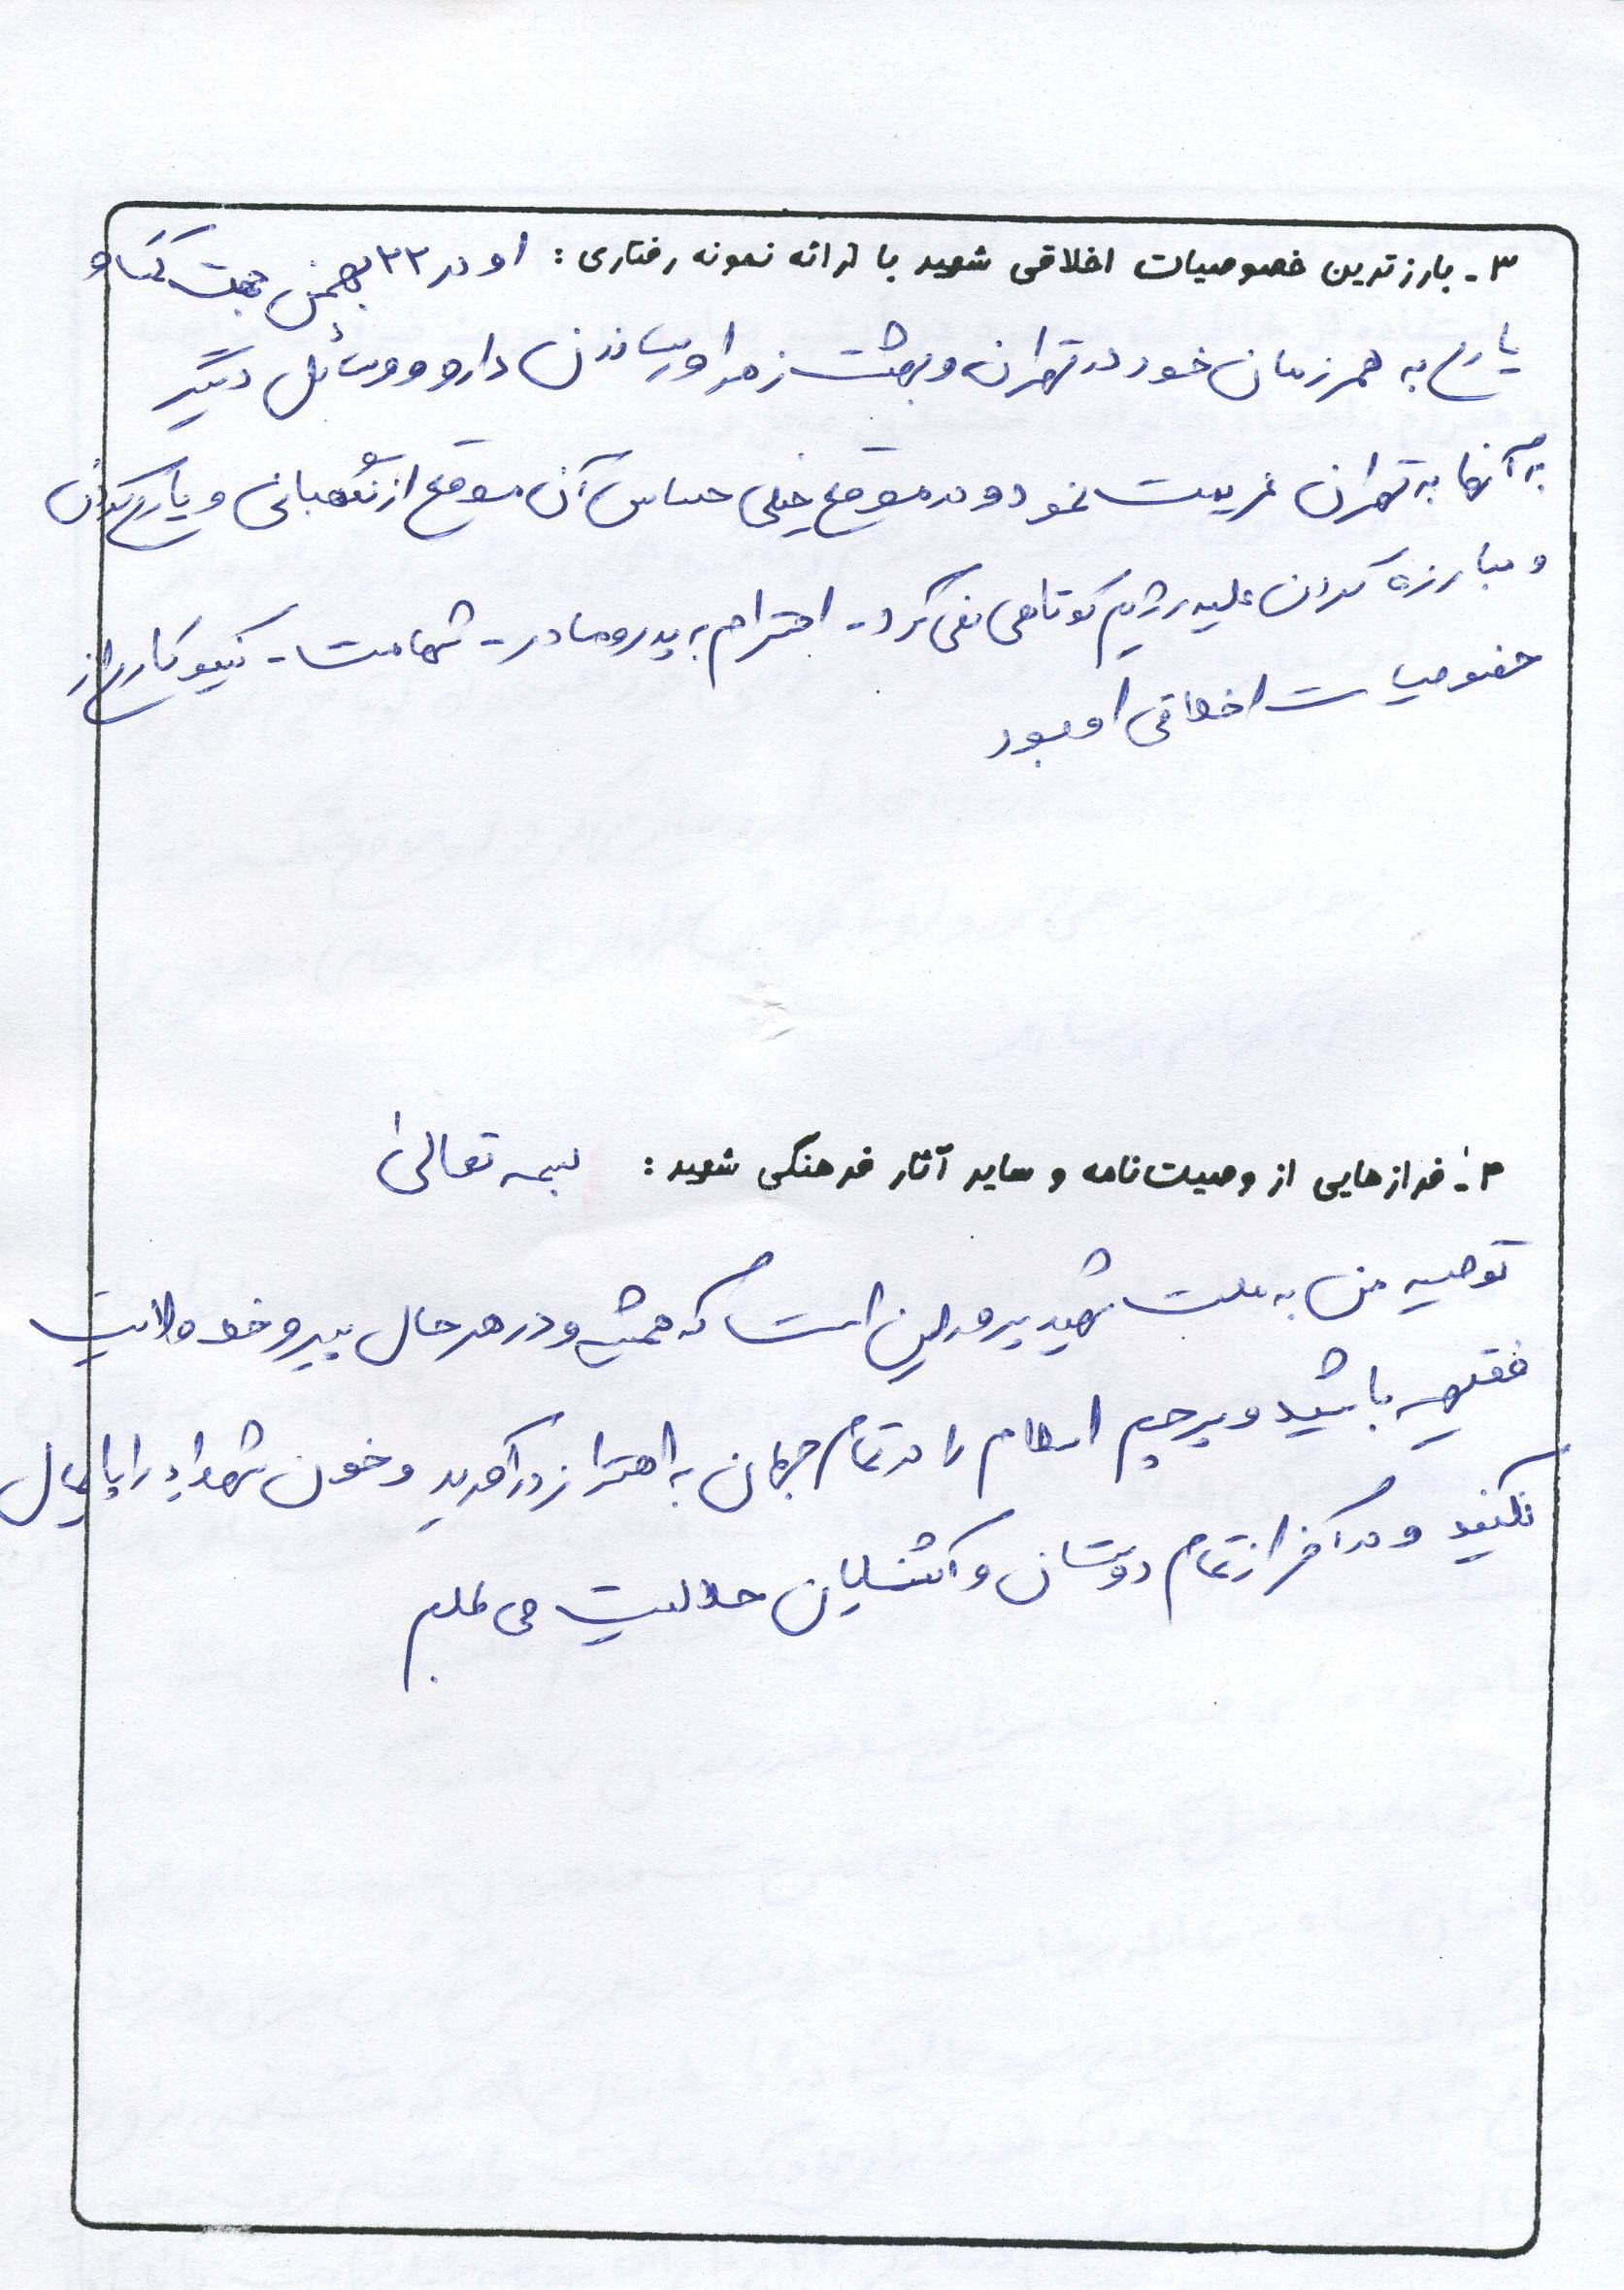 ۳- بارزترین خصوصیات اخلاقی شهید با ارائه نمونه رفتاری : او در ۲۲ بهمن جهت کمک و
یاری به همرزمان خود در تهران و بهشت زهرا و رساندن دارو و وسائل دیگر
به آنها به تهران عزیمت نمود و در موقع خیلی حساس آن موقع از نگهبانی و یاری کردن
و مبارزه کردن علیه رژیم کوتاهی نمی کرد - احترام به پدر و مادر - شهامت - نیکوکاری از
خصوصیات اخلاقی او بود
۴- فرازهایی از وصیت‌نامه و سایر آثار فرهنگی شهید : بسمه تعالی
توصیه من به ملت شهید پرور این است که همیشه و در هر حال پیرو خط ولایت
فقیه باشید و پرچم اسلام را در تمام جهان به اهتزاز درآورید و خون شهداء را پایمال
نکنید و در آخر از تمام دوستان و آشنایان حلالیت می طلبم